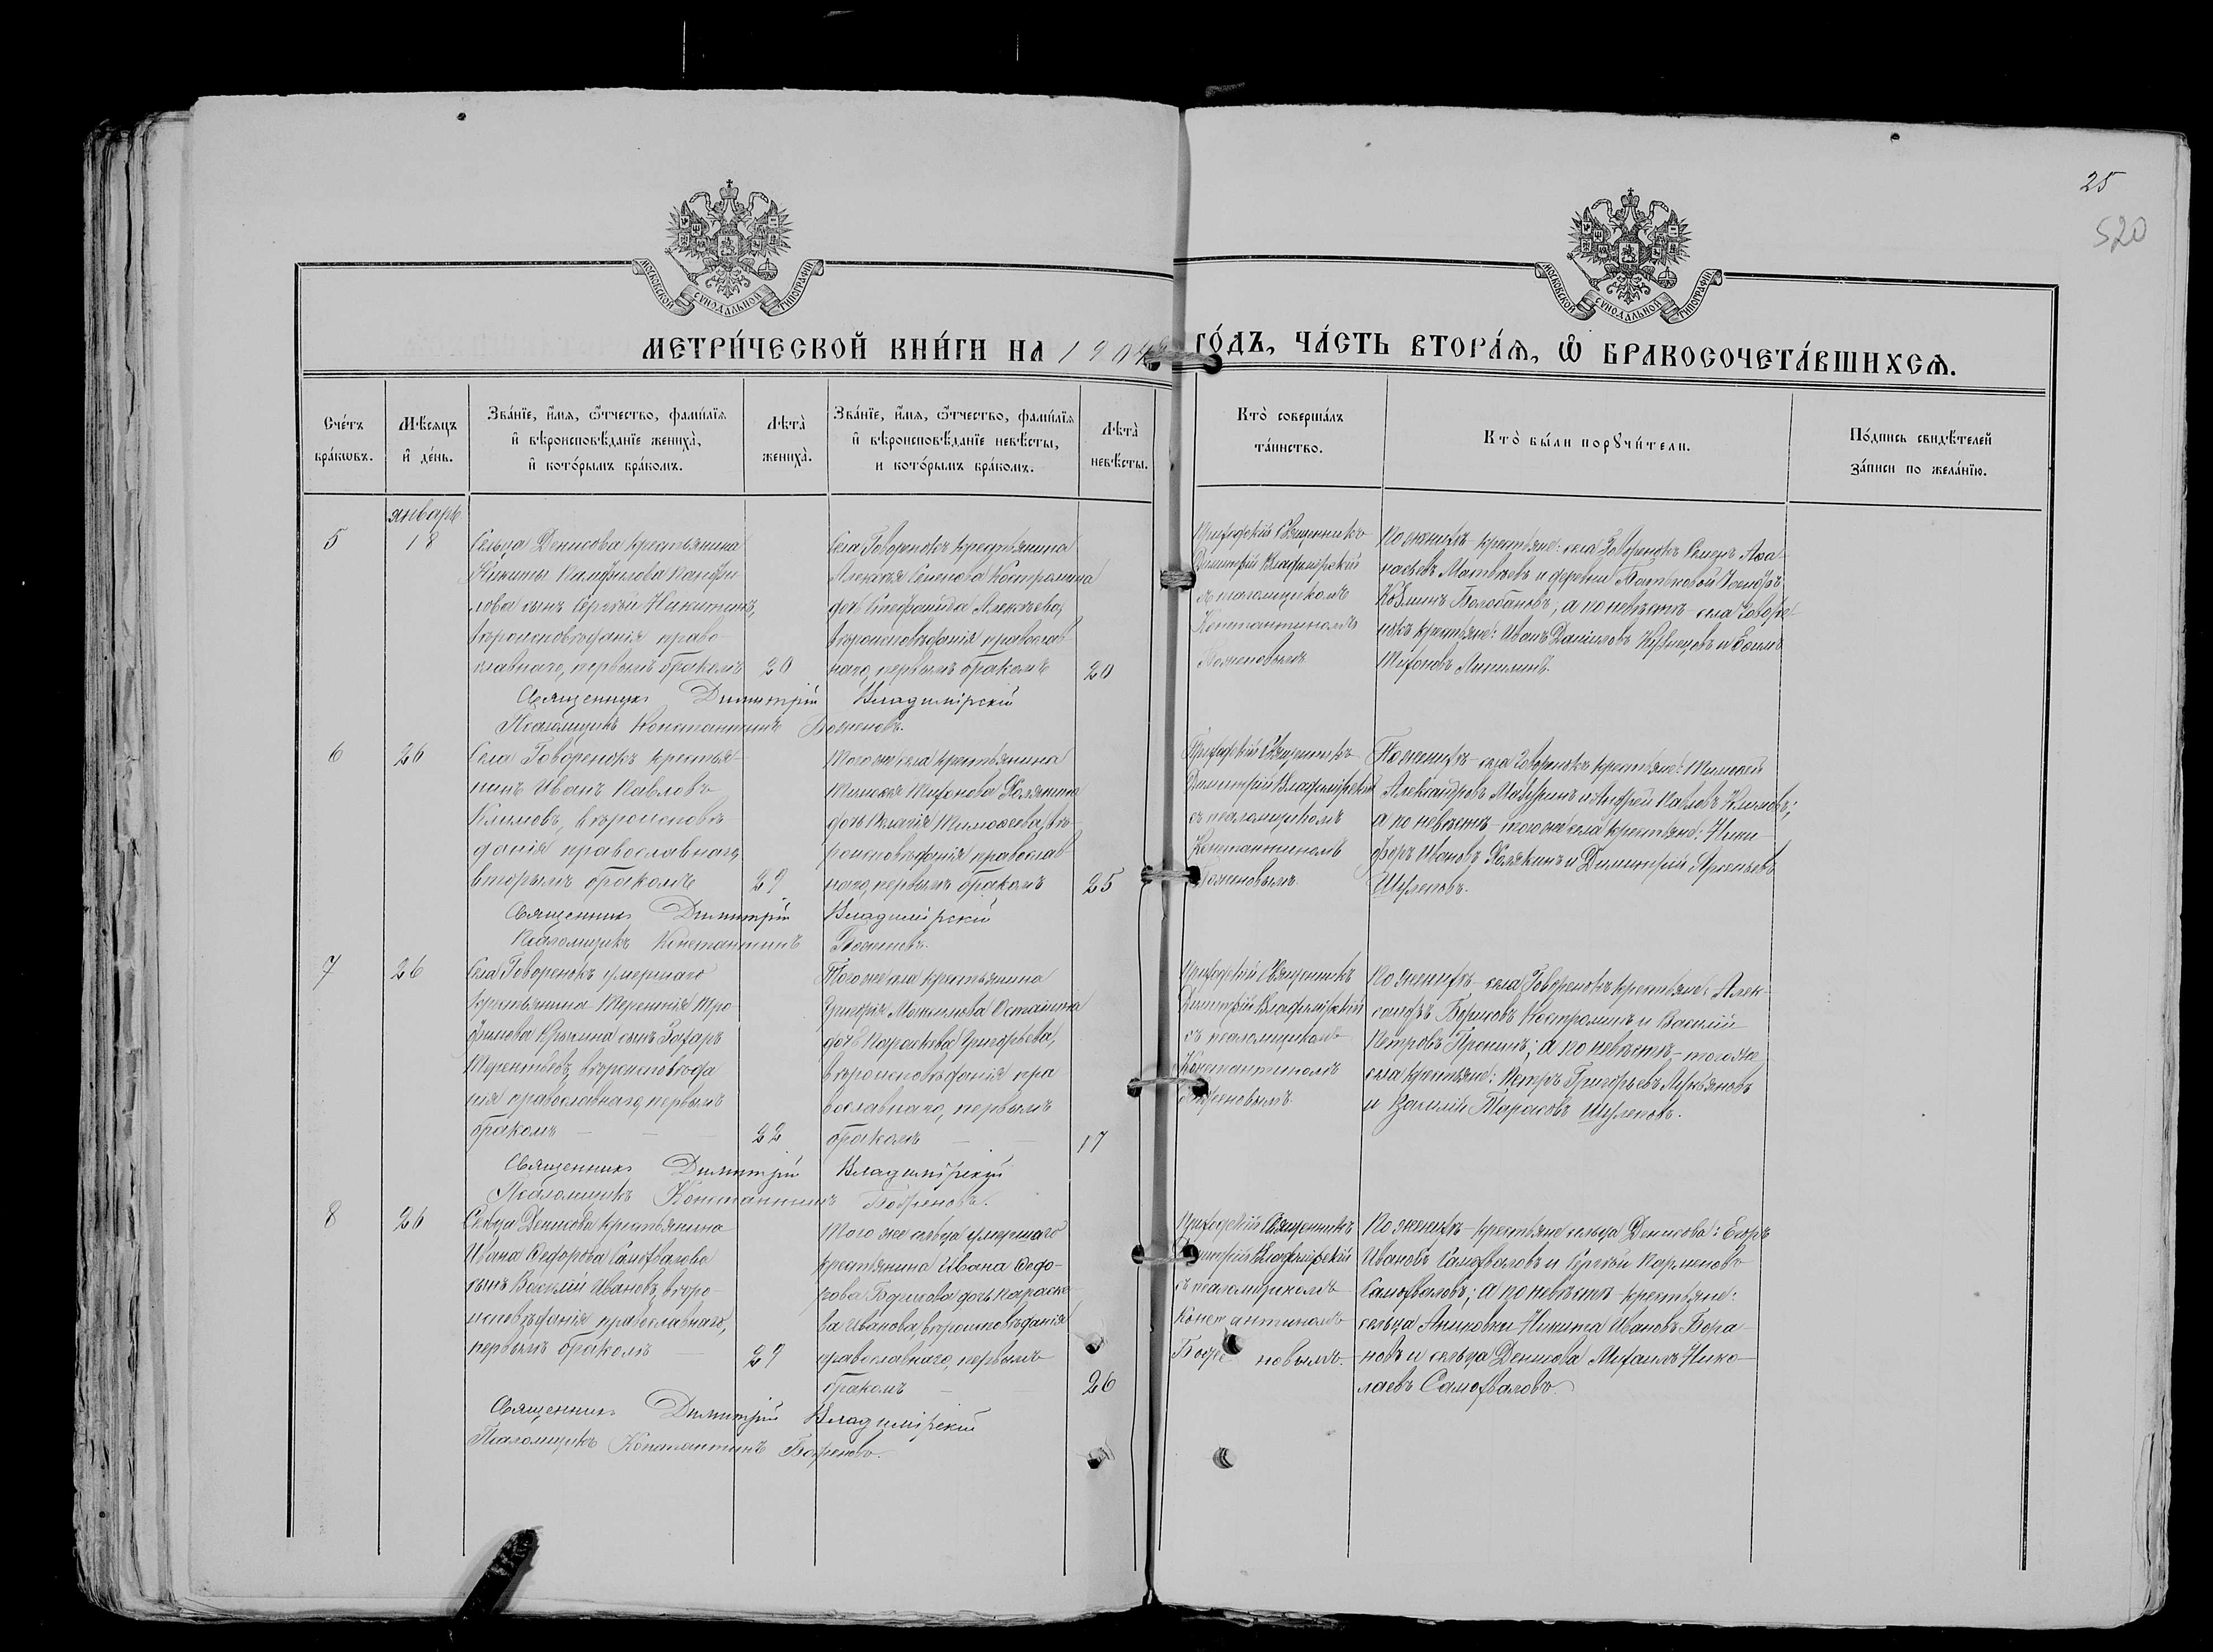 25
520
МОСКОВСКОЙ СУНОДАЛЬНОЙ ТИПОГРАФІИ
МОСКОВСКОЙ СУНОДАЛЬНОЙ ТИПОГРАФІИ
МЕТРИ́ЧЕСКОЙ КНИ́ГИ НА 1904 ГО́ДЪ, ЧА́СТЬ ВТОРА́Ѧ, Ѽ БРАКОСОЧЕТА́ВШИХСѦ.
Сче́тъ
бра́кѡвъ.
Мѣ́сѧцъ
и҆ де́нь.
Зва́нїе, и҆́мѧ, ѻ҆́тчество, фамі́лїѧ
и҆ вѣроисповѣ́данїе жениха̀,
и҆ кото́рымъ бра́комъ.
Лѣ́та
жениха̀.
Зва́нїе, и҆́мѧ, ѻ҆́тчество, фамі́лїѧ
и҆ вѣроисповѣ́данїе невѣ́сты,
и кото́рымъ бра́комъ.
Лѣ́та
невѣ́сты.
Кто̀ соверша́лъ
та́инство.
Кто̀ бы́ли порꙋчи́тели.
По́дпись свидѣ́телей
за́писи по жела́нїю.
январь
5
18
Сельца Денисова крестьянина
Никиты Памфилова Панфи
лова сынъ Сергѣй Никитинъ,
вѣроисповѣданія право-
славнаго, первымъ бракомъ
20
Села Говоренокъ крестьянина
Алексѣя Семенова Костромина
дочь Стефанида Алексѣева,
вѣроисповѣданія православ
наго, первымъ бракомъ
20
Приходскій Священникъ
Димитрій Владимірскій
съ псаломщикомъ
Константиномъ
По женихѣ - крестьяне: села Говоренокъ Семенъ Аѳа-
насьевъ Матвѣевъ и деревни
а по невѣстѣ села Говоре-
нокъ крестьяне: Иванъ Даниловъ Кузнецовъ и Ефимъ
Тихоновъ
Священникъ Димитрій Владимірскій
Псаломщикъ Константинъ
6
26
Села Говоренокъ крестья-
нинъ Иванъ Павловъ
Климовъ, вѣроисповѣ-
данія православнаго,
вторымъ бракомъ
29
Того же села крестьянина
Тимоѳея Тихонова Холякина
дочь Пелагія Тимоѳеева, вѣ-
роисповѣданія православ
наго, первымъ бракомъ
25
Приходскій Священникъ
Димитрій Владимірскій
съ псаломщикомъ
Константиномъ
По женихѣ - села Говоренокъ крестьяне: Тимоѳей
Александровъ Мазуринъ и Андрей Павловъ Климовъ;
а по невѣстѣ - того же села крестьяне: Ники-
форъ Ивановъ Холякинъ и Димитрій Арсеньевъ
Шулеповъ.
Священникъ Димитрій Владимірскій
Псаломщикъ Константинъ
7
26
Села Говоренокъ умершаго
крестьянина Терентія Тро-
фимова сынъ Захаръ
Терентьевъ, вѣроисповѣда
нія православнаго, первымъ
бракомъ
22
Того же села крестьянина
Григорія Осташкина
дочь Параскева Григорьева,
вѣроисповѣданія пра
вославнаго, первымъ
бракомъ
17
Приходскій Священникъ
Димитрій Владимірскій
съ псаломщикомъ
Константиномъ
По женихѣ - села Говоренокъ крестьяне: Алек-
сандръ Борисовъ Костроминъ и Василій
Петровъ Пронинъ; а по невѣстѣ - того же
села крестьяне: Петръ Григорьевъ Лукьяновъ
и Василій Тарасовъ Шулеповъ.
Священникъ Димитрій Владимірскій
Псаломщикъ Константинъ
8
26
Сельца Денисова крестьянина
Ивана Ѳедорова Самохвалова
сынъ Василій Ивановъ, вѣро-
исповѣданія православнаго,
первымъ бракомъ
29
Того же сельца умершаго
крестьянина Ивана Ѳедо-
рова Борисова дочь Параске
ва Иванова, вѣроисповѣданія
православнаго, первымъ
бракомъ
26
Приходскій Священникъ
Димитрій Владимірскій
съ псаломщикомъ
Константиномъ
По женихѣ - крестьяне сельца Денисова: Егоръ
Ивановъ Самохваловъ и Сергѣй Парменовъ
Самохваловъ; а по невѣстѣ - крестьяне:
сельца Аниковки Никита Ивановъ Бара-
новъ и сельца Денисова Михаилъ Нико-
лаевъ Самохваловъ.
Священникъ Димитрій Владимірскій
Псаломщикъ Константинъ